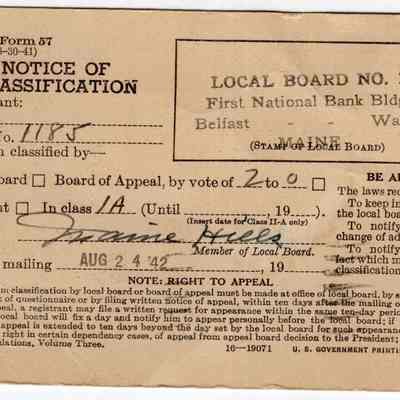 Form 57
-30-41)
NOTICE OF
LASSIFICATION
LOCAL BOARD NO.
First National Bank Bldg
Belfast - - Wa
MAINE
(STAMP OF LOCAL BOARD)
ant:
No. 1185
n classified by—
oard □ Board of Appeal, by vote of 2 to 0 □
nt □ In class 1A (Until ............, 19......).
(Insert date for Class II-A only)
Hills
Member of Local Board.
mailing AUG 24 '42, 19
BE A
The laws req
To keep in
the local boar
To notify
change of ad
To notify
fact which m
classification
NOTE: RIGHT TO APPEAL
m classification by local board or board of appeal must be made at office of local board, by s
of questionnaire or by filing written notice of appeal, within ten days after the mailing o
ppeal, a registrant may file a written request for appearance within the same ten-day perio
ocal board will fix a day and notify him to appear personally before the local board; if
appeal is extended to ten days beyond the day set by the local board for such appearance
right in certain dependency cases, of appeal from appeal board decision to the President;
ulations, Volume Three.
16—19071 U. S. GOVERNMENT PRINTI